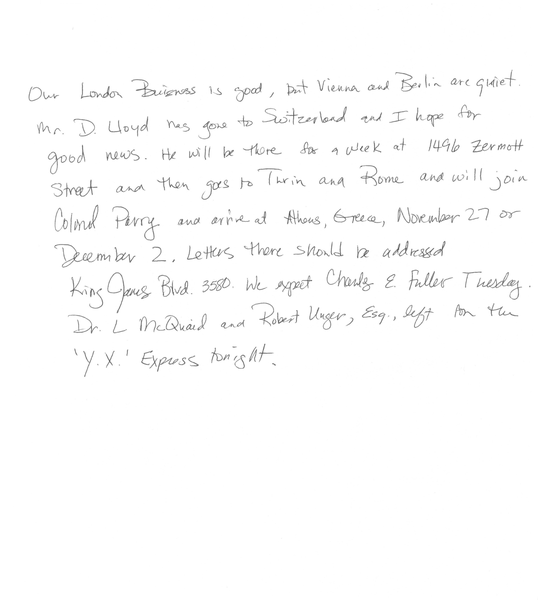 Our London Business is good, but Vienna and Berlin are quiet.
Mr. D. Lloyd has gone to Switzerland and I hope for
good news. He will be there for a week at 1496 Zermott
Street and then goes to Turin and Rome and will join
Colonel Parry and arrive at Athens, Greece, November 27 or
December 2. Letters there should be addressed
King James Blvd. 3580. We expect Charles E. Fuller Tuesday.
Dr. L McQuaid and Robert Unger, Esq., left on the
'Y.X.' Express tonight.